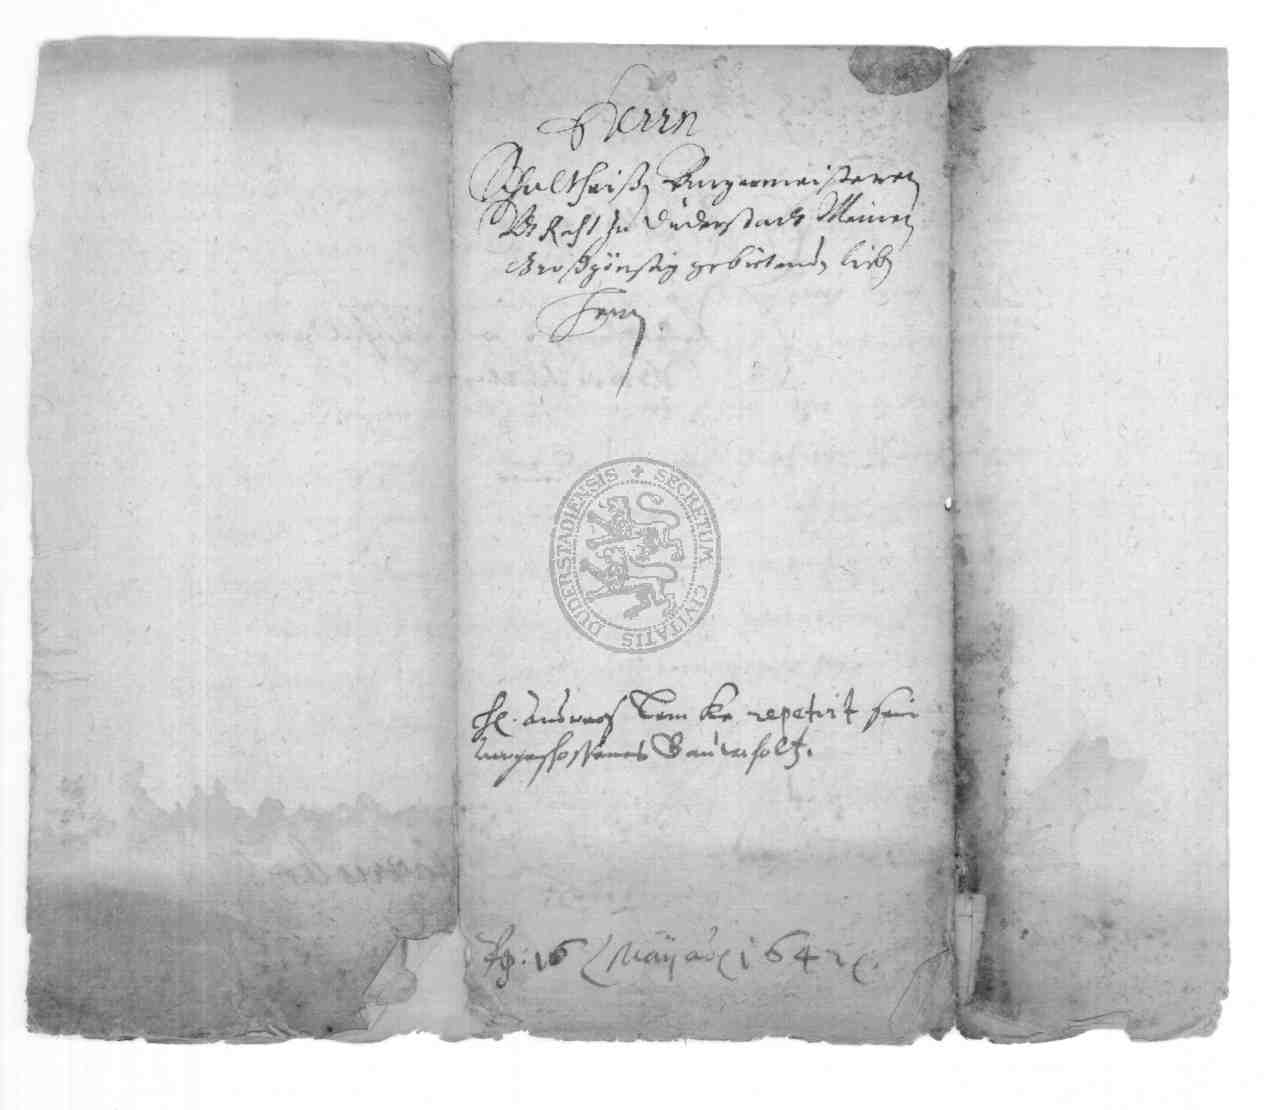 Herrn
Schultheißen Burgermeisteren
Vndt Raht zu Duderstadt Meinen
Großgünstig gebietenden lieben
Herrn
SECRETUM CIVITATIS DUDERSTADIENSIS
repetirt sein
vorgeschossenes Bauwholtz.
16 Maij 1642